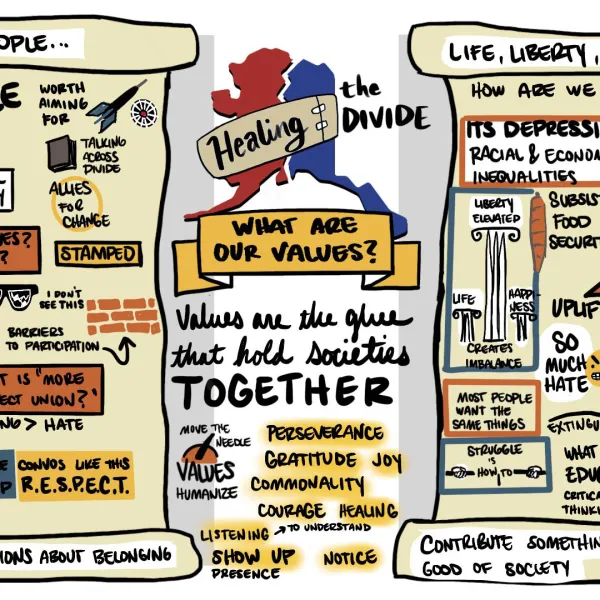 OPLE...
WORTH
AIMING
FOR
TALKING
ACROSS
DIVIDE
ALLIES
FOR
CHANGE
STAMPED
I DON'T
SEE THIS
BARRIERS
TO PARTICIPATION
IS "MORE
UNION?"
> HATE
CONVOS LIKE THIS
R.E.S.P.E.C.T.
ABOUT BELONGING
Healing
the
DIVIDE
WHAT ARE
OUR VALUES?
Values are the glue
that hold societies
TOGETHER
MOVE THE
NEEDLE
VALUES
HUMANIZE
PERSEVERANCE
GRATITUDE JOY
COMMONALITY
COURAGE HEALING
LISTENING → TO UNDERSTAND
SHOW UP NOTICE
PRESENCE
LIFE, LIBERTY,
HOW ARE WE
ITS DEPRESSI
RACIAL & ECONOM
INEQUALITIES
LIBERTY
ELEVATED
LIFE
HAPPI-
NESS
CREATES
IMBALANCE
SUBSIS
FOOD
SECURIT
UPLIF
SO
MUCH
HATE
MOST PEOPLE
WANT THE
SAME THINGS
EXTINGU
STRUGGLE
IS
HOW TO
WHAT
EDU
CRITICA
THINKI
CONTRIBUTE SOMETHIN
GOOD OF SOCIETY